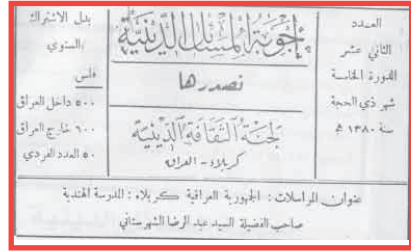 العـــدد
الثاني عشر
الدورة الخامسة
شهر ذي الحجة
سنة ١٣٨٠ هـ
أجوبة المسائل الدينية
تصدرها
لجنة الثقافة الدينية
كربلاء - العراق
بدل الاشتراك
السنوي
فلس
٥٠٠ داخل العراق
٦٠٠ خارج العراق
٥٠ العدد الفردي
عنوان المراسلات : الجمهورية العراقية كربلاء : المدرسة الهندية
صاحب الفضيلة السيد عبد الرضا الشهرستاني